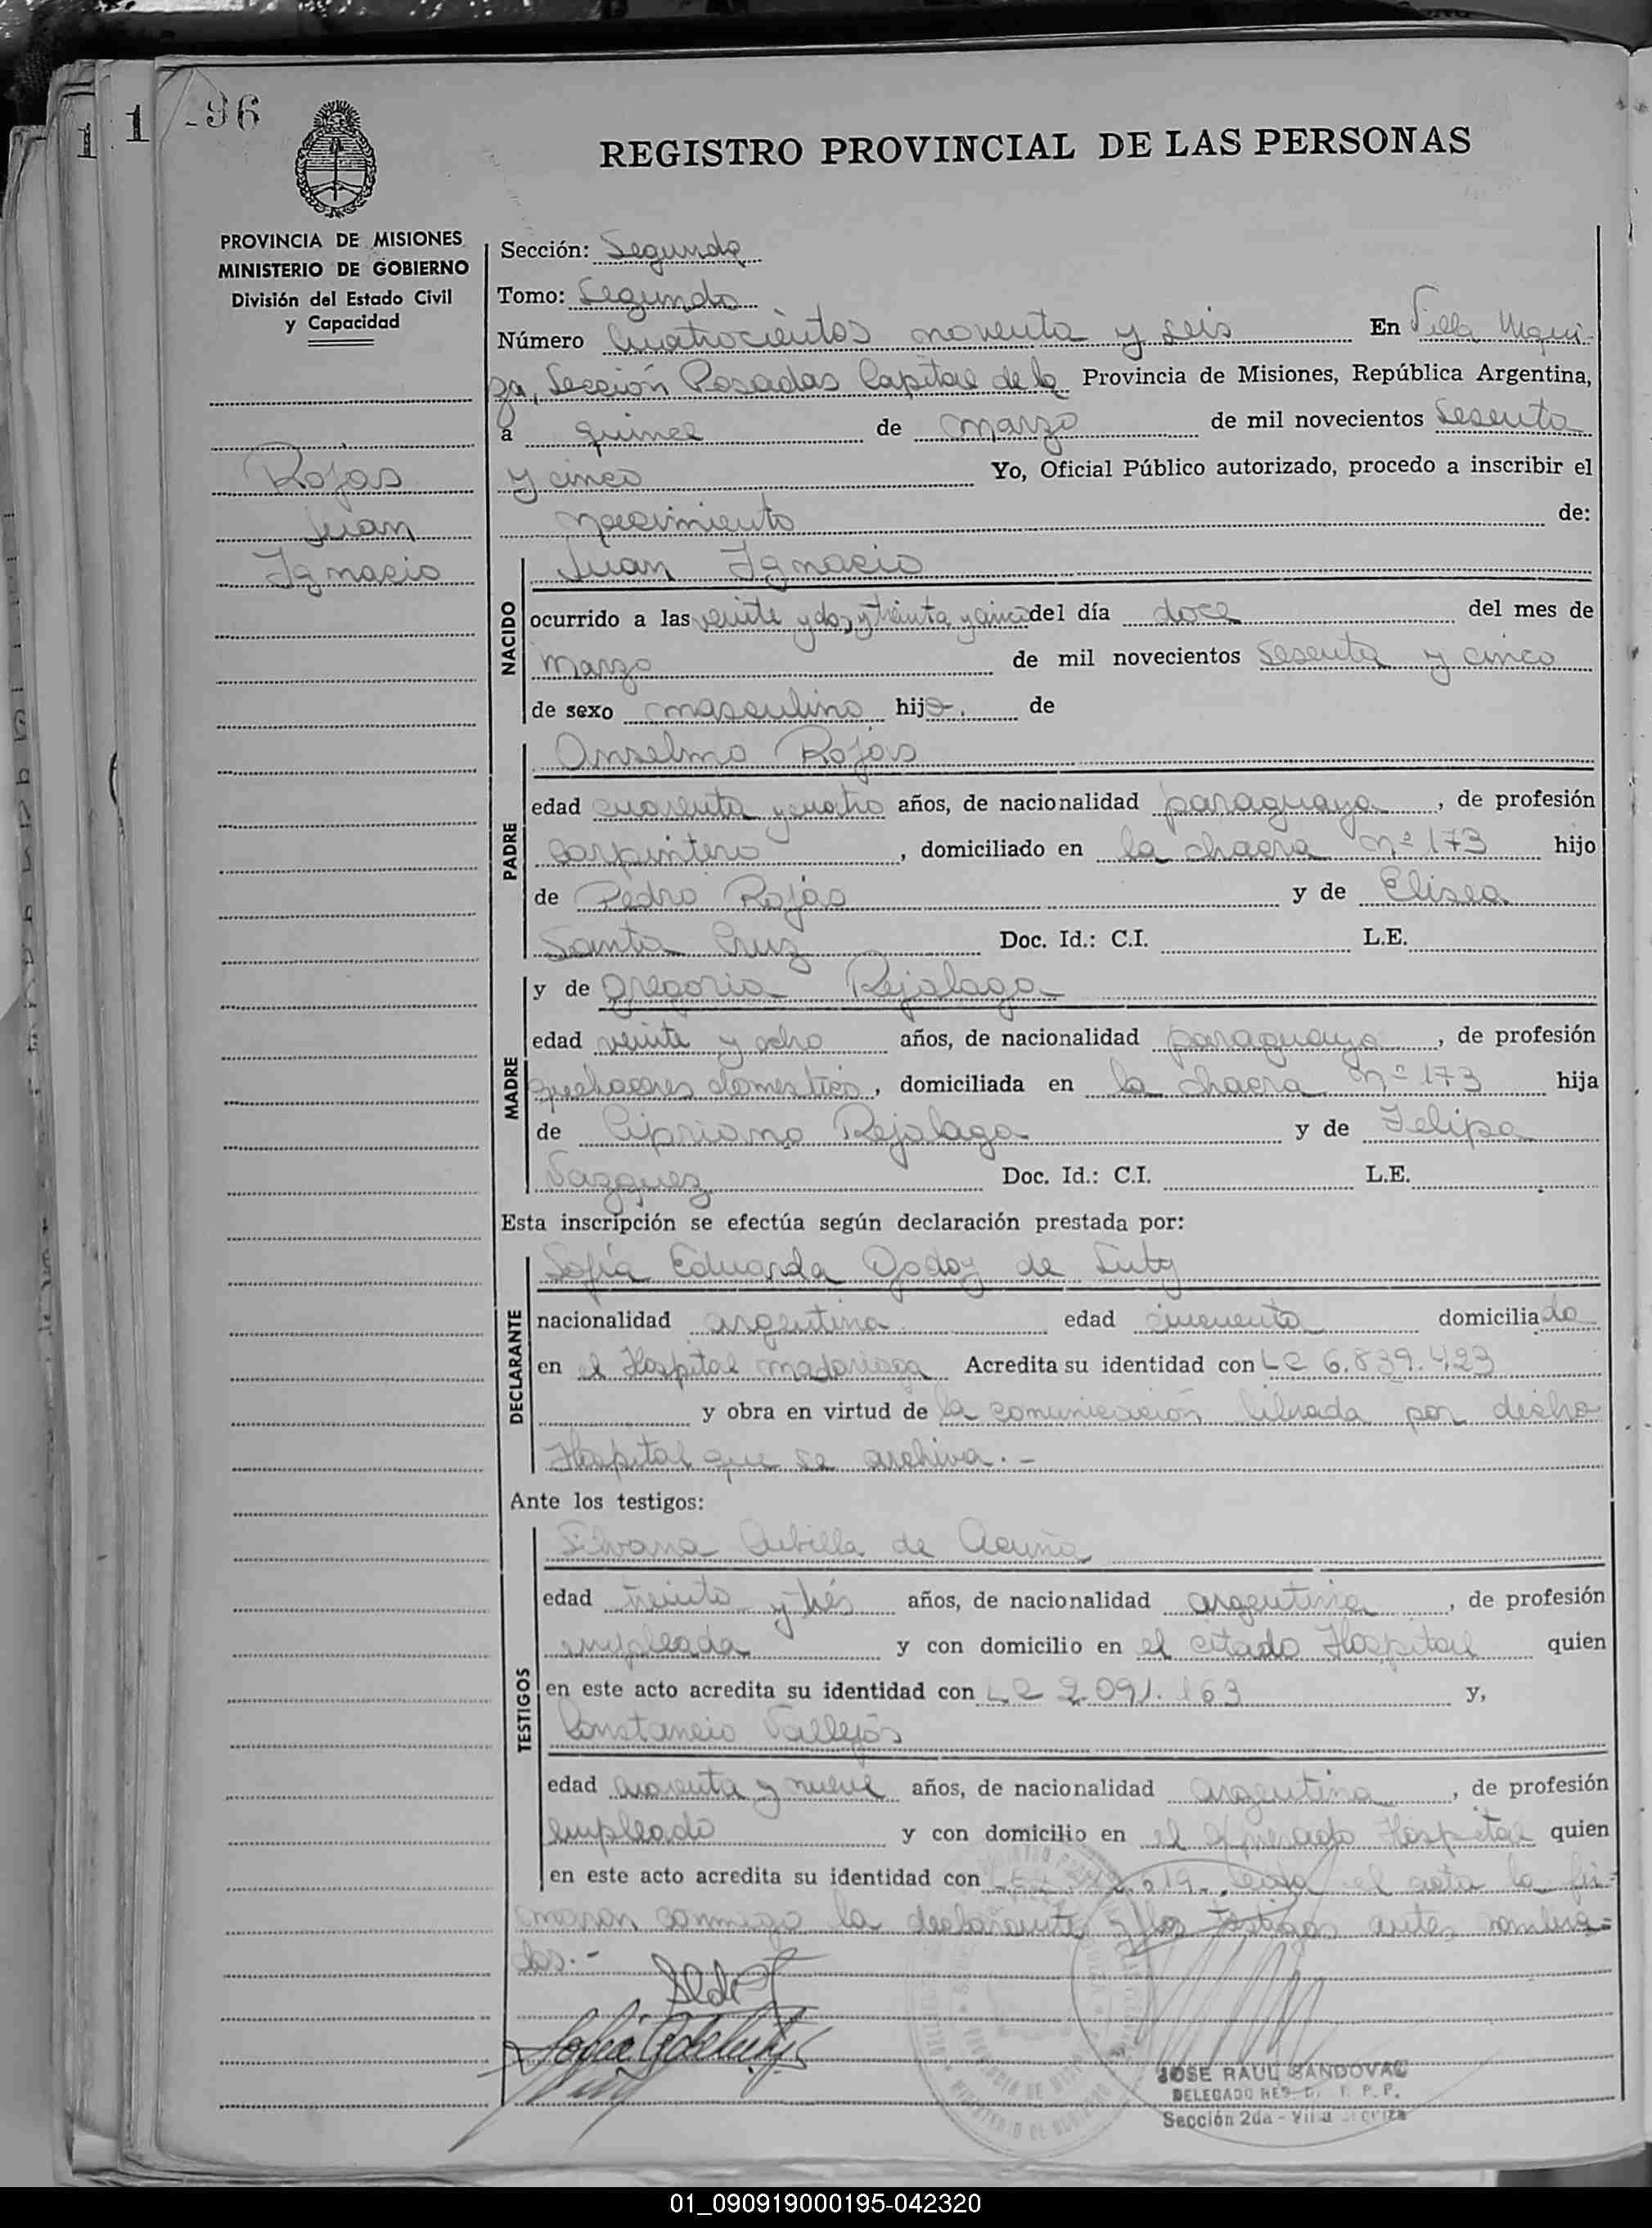 1 1 -96
REGISTRO PROVINCIAL DE LAS PERSONAS
PROVINCIA DE MISIONES
MINISTERIO DE GOBIERNO
División del Estado Civil
y Capacidad
Rojas
Juan
Ignacio
Sección: Segunda
Tomo: Segundo
Número Cuatrocientos noventa y seis En Villa Urqui-
za, Sección Posadas Capital de la Provincia de Misiones, República Argentina,
a quince de marzo de mil novecientos sesenta
y cinco Yo, Oficial Público autorizado, procedo a inscribir el
nacimiento de:
NACIDO
Juan Ignacio
ocurrido a las veinte y dos y treinta y cinco del día doce del mes de
Marzo de mil novecientos sesenta y cinco
de sexo masculino hijo. de
PADRE
Anselmo Rojas
edad cuarenta y cuatro años, de nacionalidad paraguaya, de profesión
carpintero, domiciliado en la chacra nº 173 hijo
de Pedro Rojas y de Elisea
Santa Cruz Doc. Id.: C.I. L.E.
MADRE
y de Gregoria Rejalaga
edad veinte y ocho años, de nacionalidad paraguaya, de profesión
quehaceres domesticos, domiciliada en la chacra nº 173 hija
de Cipriano Rejalaga y de Felipa
Vazquez Doc. Id.: C.I. L.E.
Esta inscripción se efectúa según declaración prestada por:
DECLARANTE
Sofía Eduarda Godoy de
nacionalidad argentina edad cincuenta domiciliada
en el Hospital Madariaga Acredita su identidad con LC 6.839.423
y obra en virtud de la comunicación librada por dicho
Hospital que se archiva.-
Ante los testigos:
TESTIGOS
Silvana Cubilla de Acuña
edad treinta y trés años, de nacionalidad argentina, de profesión
empleada y con domicilio en el citado Hospital quien
en este acto acredita su identidad con LC 2.091.163 y,
Constancio Vallejos
edad cuarenta y nueve años, de nacionalidad argentina, de profesión
empleado y con domicilio en el expresado Hospital quien
en este acto acredita su identidad con Leída el acta la fir-
maron conmigo la declarante y los testigos antes nombra=
dos.-
JOSE RAUL SANDOVAL
DELEGADO REG. D. E. P. P.
Sección 2da - Villa Urquiza
01_090919000195-042320